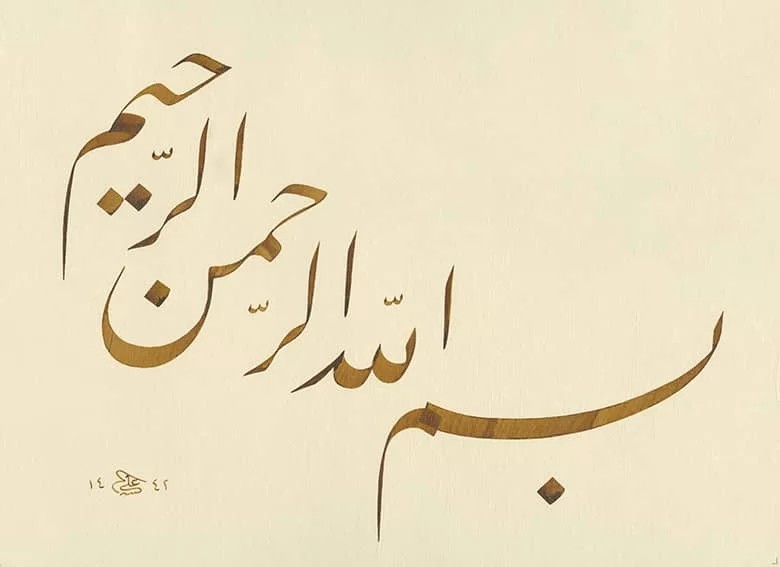 بسم الله الرَّحمن الرَّحيم
١٤ ٤٢